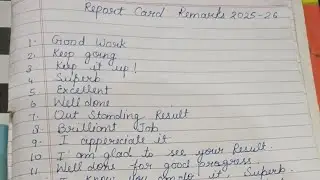 Report Card Remarks 2025-26
1- Good Work
2. Keep going
3. Keep it up!
4. Superb
5. Excellent
6. Well done
7. Out Standing Result
8. Brilliant Job
9. I appreciate it
10. I am glad to see your Result.
11. Well done for good progress.
I know you can do it. Superb.